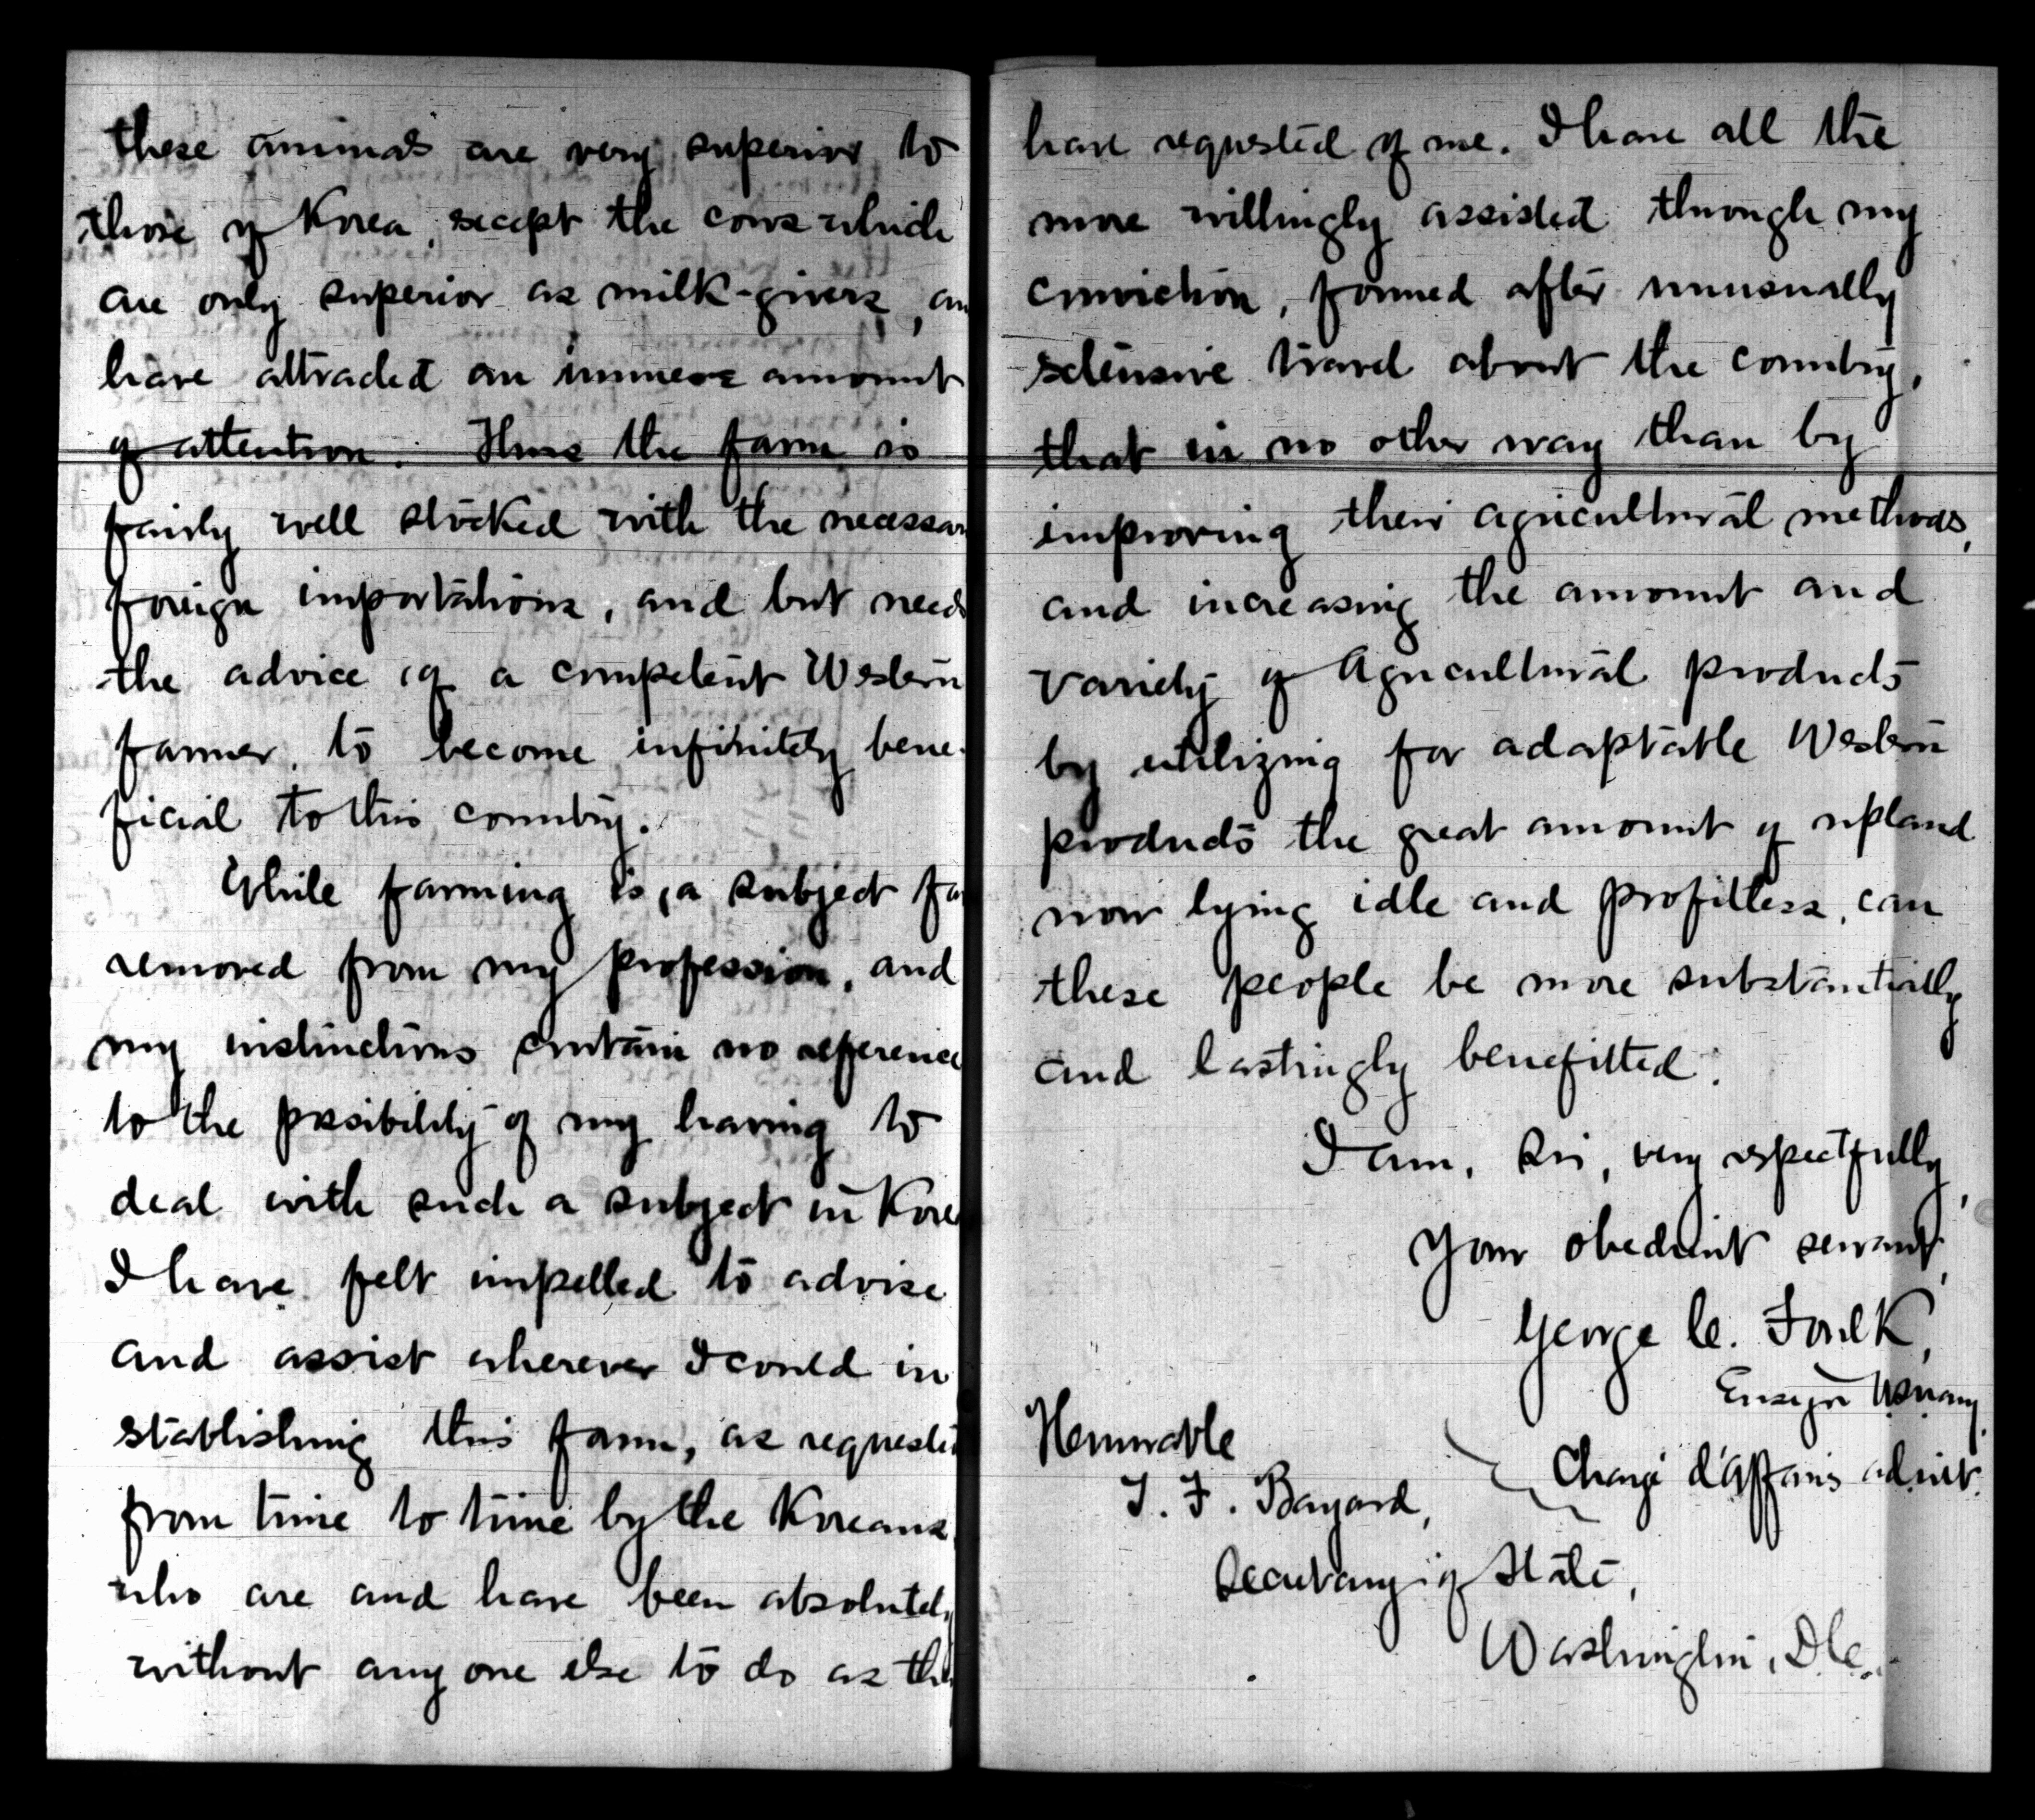 these animals are very superior to
those of Korea, except the cows which
are only superior as milk-givers, an
have attracted an immense amount
of attention. Thus the farm is
fairly well stocked with the necessar
foreign importations, and but needs
the advice of a competent Western
farmer, to become infinitely bene-
ficial to this country.
While farming is, a subject far
removed from my profession, and
my instructions contain no reference
to the possibility of my having to
deal with such a subject in Korea
I have felt impelled to advise
and assist wherever I could in
establishing this farm, as requested
from time to time by the Koreans,
who are and have been absolutely
without any one else to do as they
have requested of me. I have all the
more willingly assisted through my
conviction, formed after unusually
extensive travel about the country,
that in no other way than by
improving their agricultural methods,
and increasing the amount and
variety of Agricultural products
by utilizing for adaptable Western
products the great amount of upland
now lying idle and profitless, can
these people be more substantially
and lastingly benefitted.
I am, Sir, very respectfully,
Your obedient servant,
George C. Foulk,
Ensign U.S. Navy,
Chargé d'Affaires ad int.
Honorable
T. F. Bayard,
Secretary of State,
Washington, D.C.